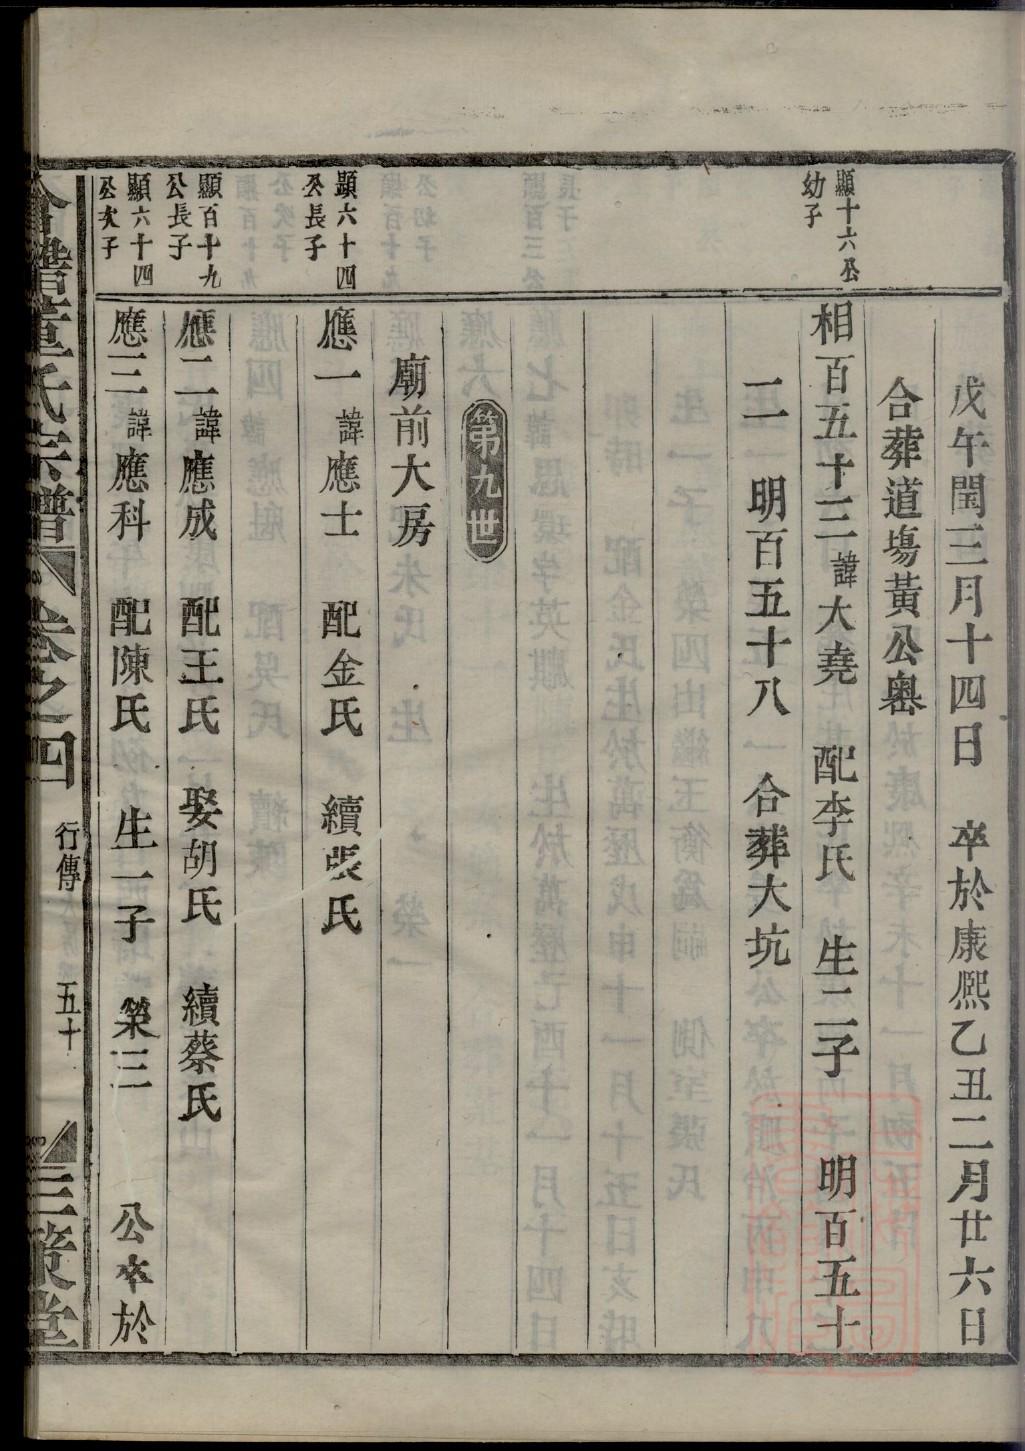 戊午閏三月十四日 卒於康熙乙丑二月廿六日
合葬道塲黃公嶴
顯十六公
幼子
相百五十三諱大堯 配李氏 生二子 明百五十
二 明百五十八 合葬大坑
第九世
廟前大房
顯六十四
公長子
應一諱應士 配金氏 續張氏
顯百十九
公長子
應二諱應成 配王氏 娶胡氏 續蔡氏
顯六十四
公次子
應三諱應科 配陳氏 生一子 榮三 公卒於
氏宗譜 卷之四 行傳 五十 三策堂